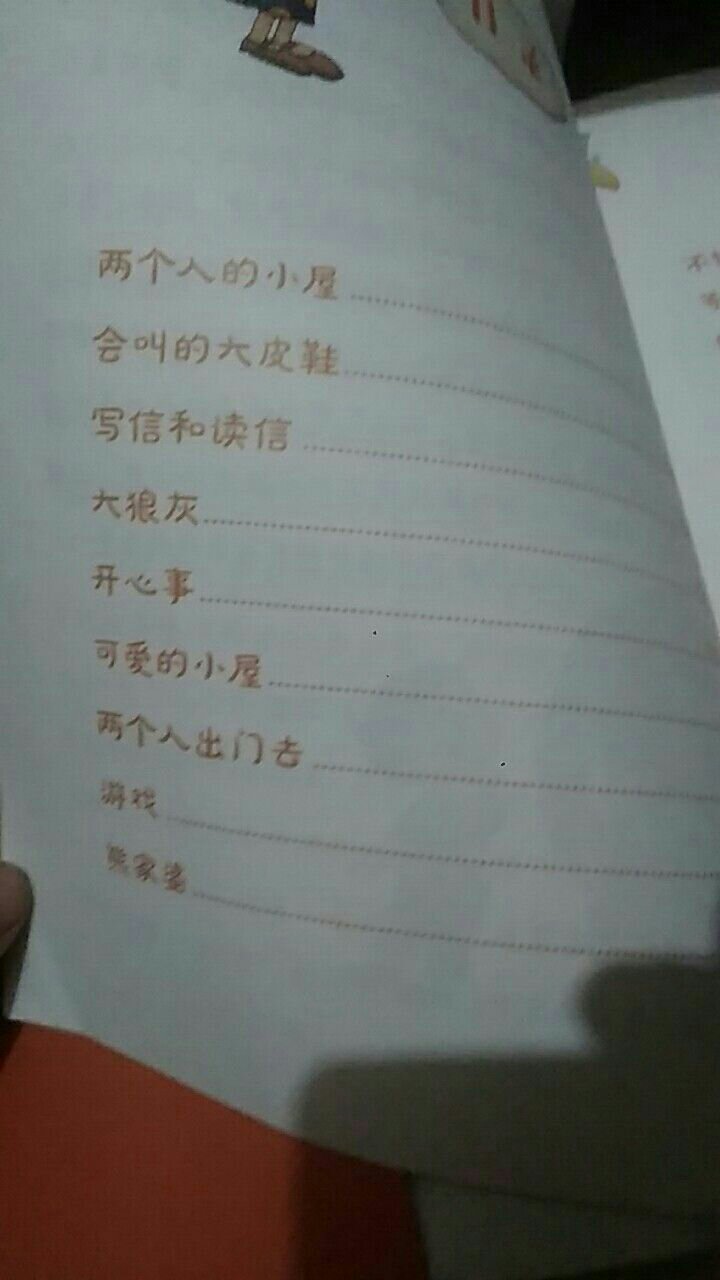 两个人的小屋
会叫的大皮鞋
写信和读信
大狼灰
开心事
可爱的小屋
两个人出门去
游戏
熊家婆
不